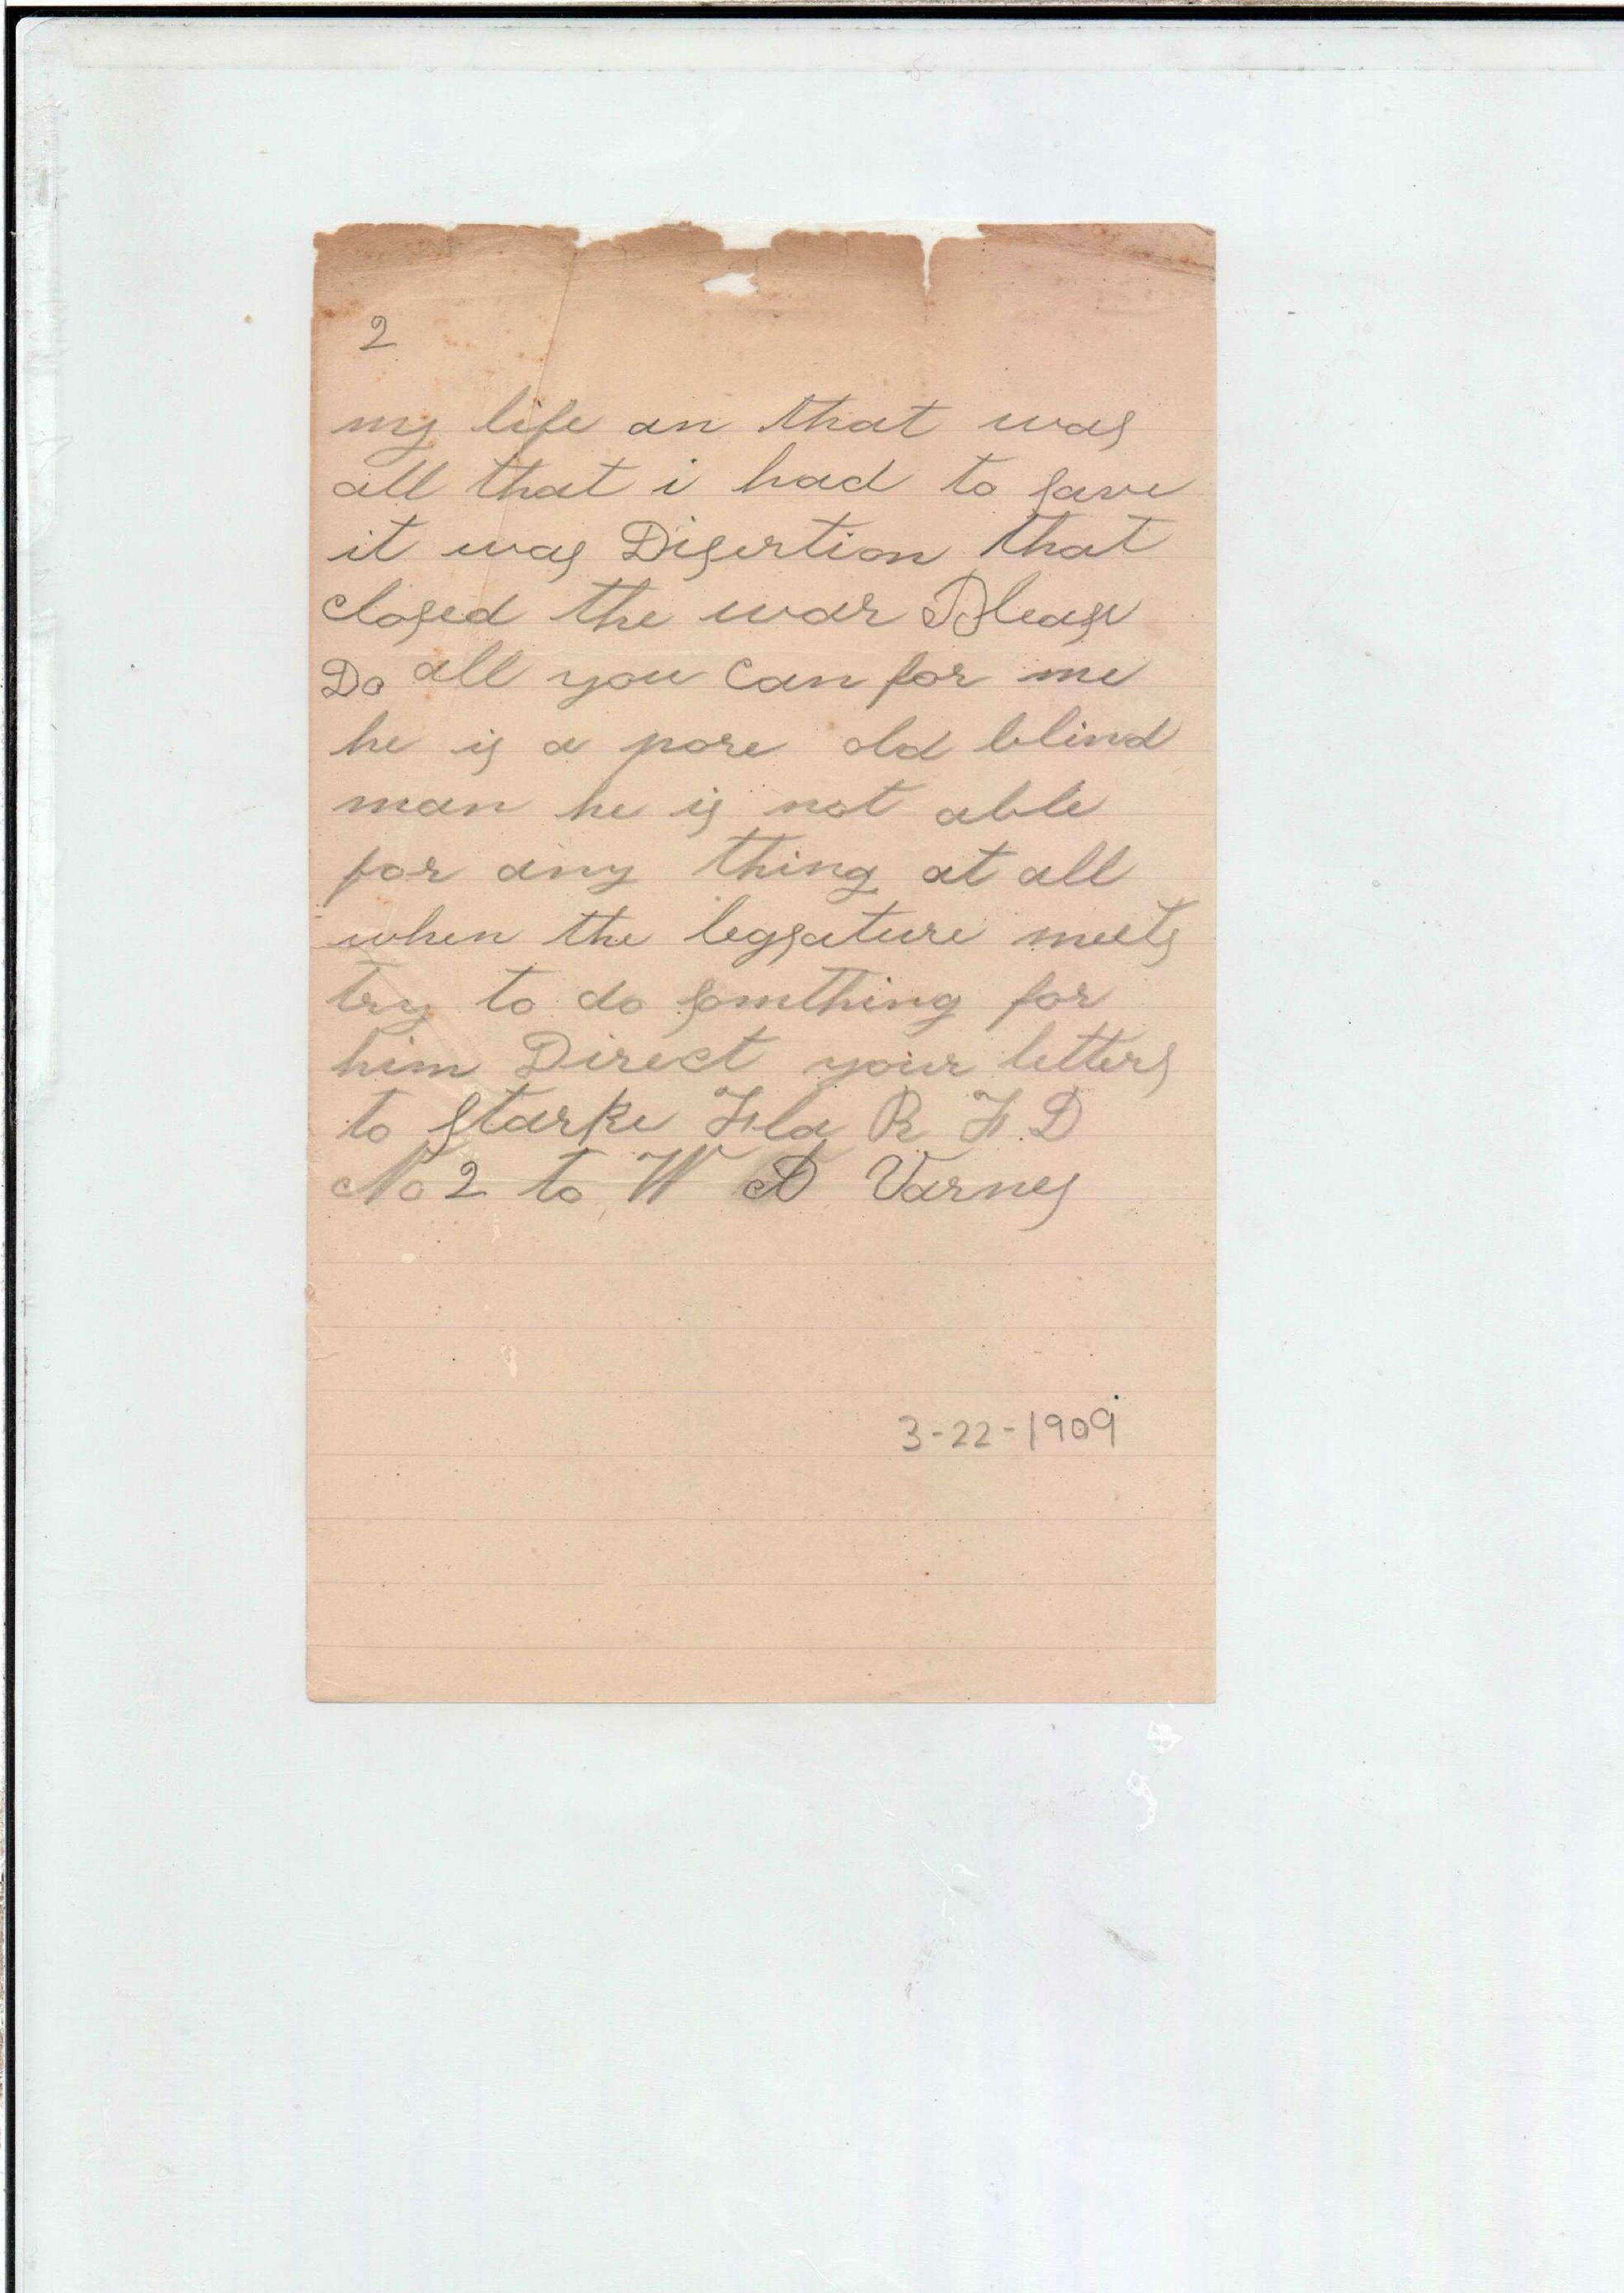 2
my life an that was
all that i had to save
it was Disertion that
closed the war Please
Do all you can for me
he is a pore old blind
man he is not able
for any thing at all
when the legsature meets
try to do somthing for
him Direct your letters
to Starke Fla R F D
No 2 to W D Varnes
3-22-1909